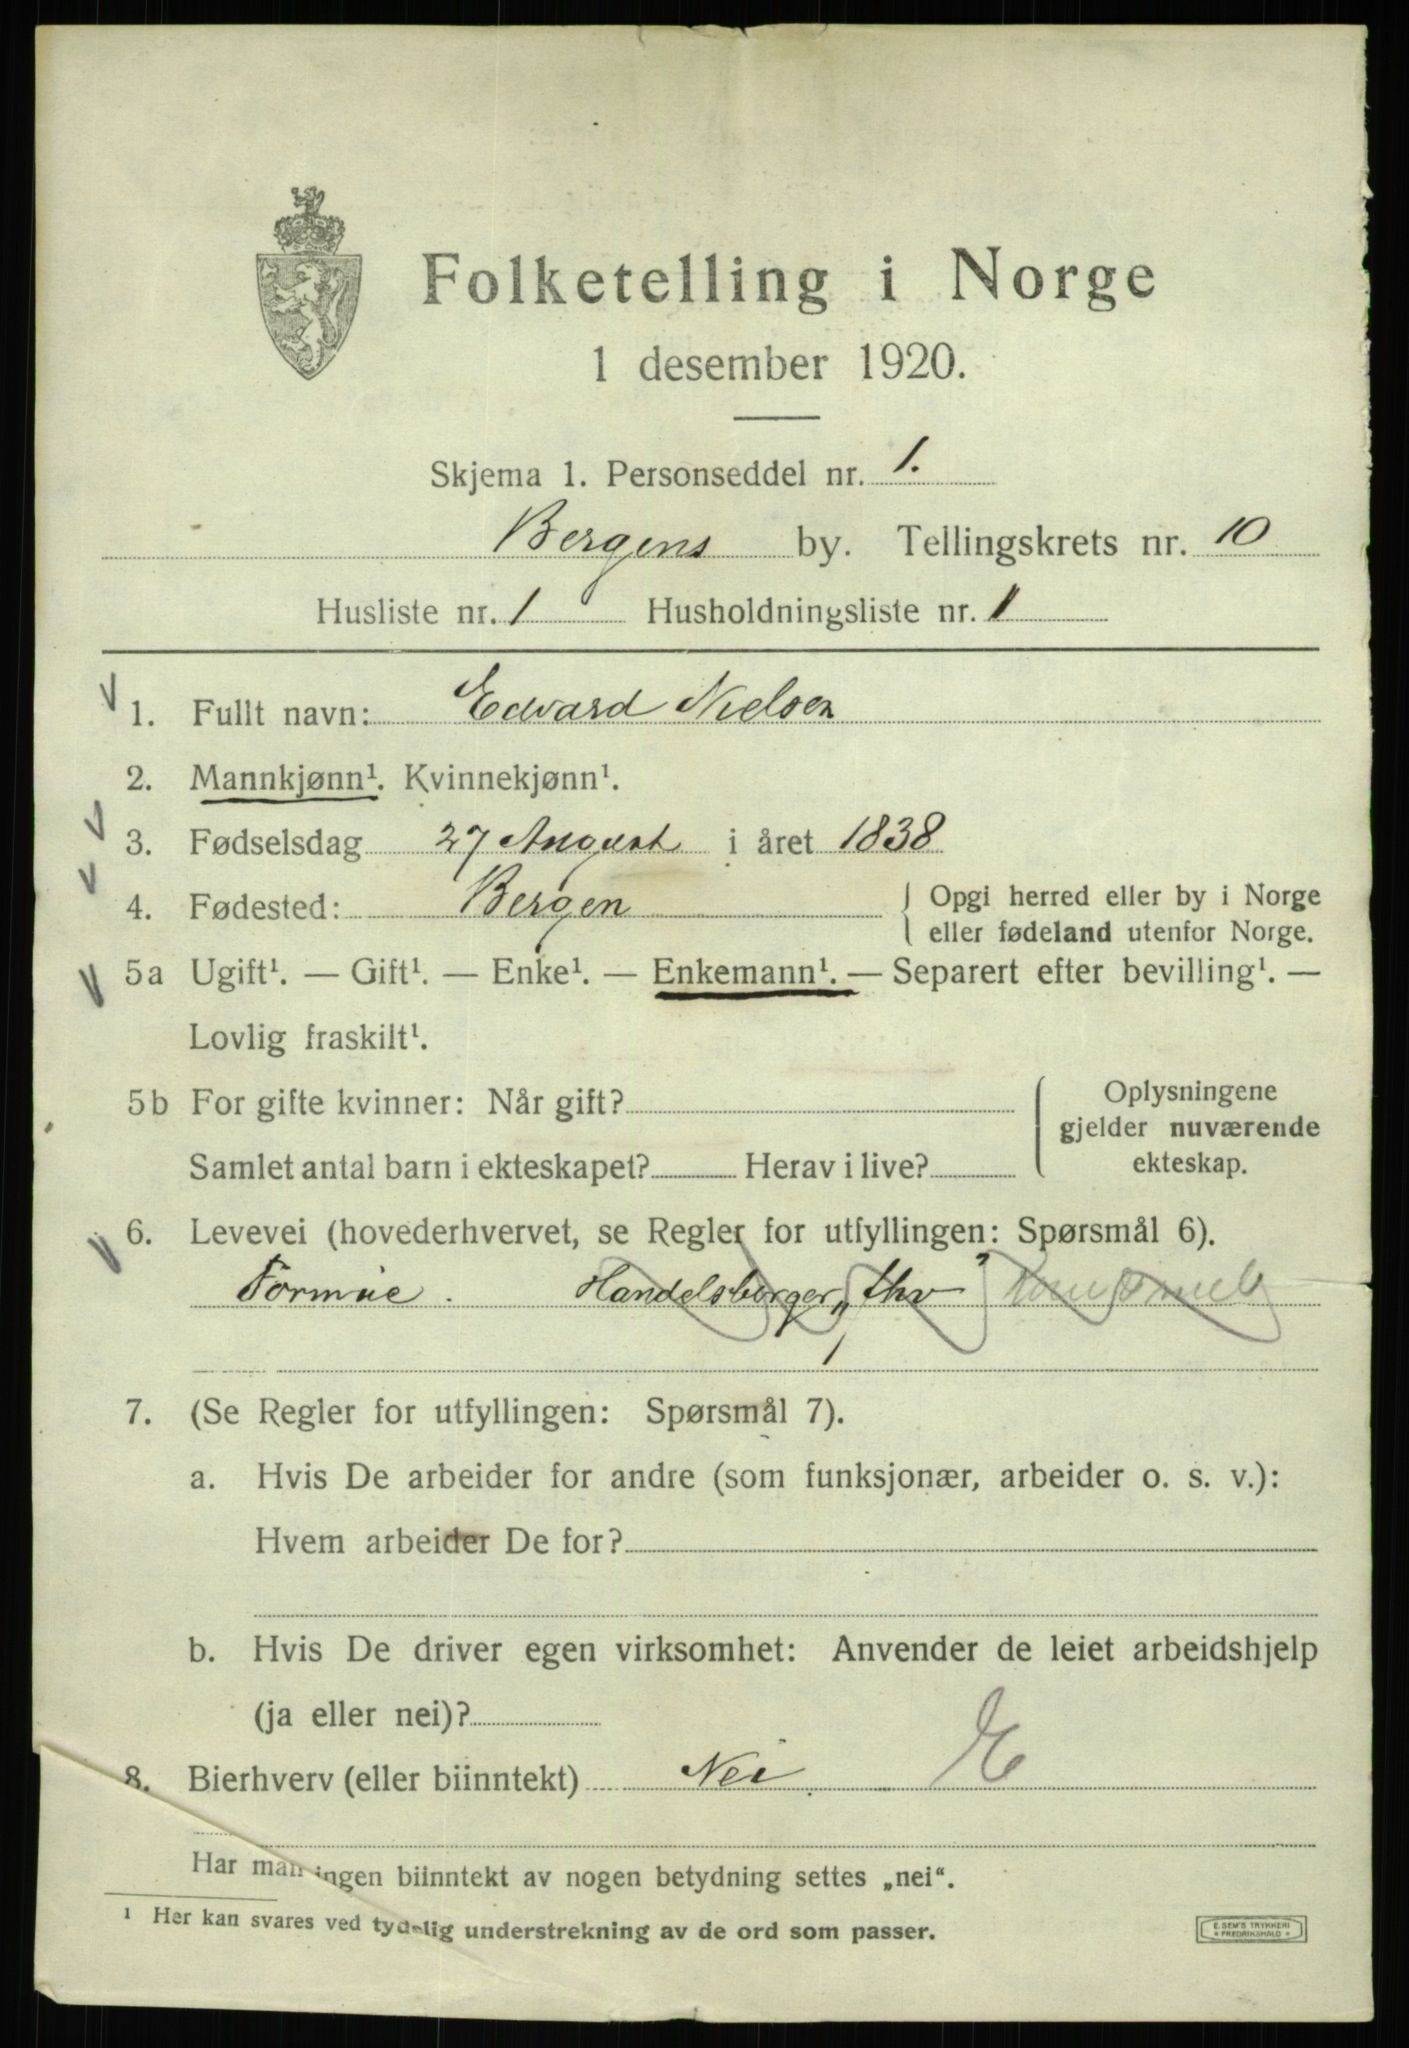 Folketelling i Norge
1 desember 1920.
Skjema 1. Personseddel nr. 1.
Bergens by. Tellingskrets nr. 10
Husliste nr. 1 Husholdningsliste nr. 1
1. Fullt navn: Edward Nielsen
2. Mannkjønn¹. Kvinnekjønn¹.
3. Fødselsdag 27 August i året 1838
4. Fødested: Bergen { Opgi herred eller by i Norge
eller fødeland utenfor Norge.
5a Ugift¹. — Gift¹. — Enke¹. — Enkemann¹. — Separert efter bevilling¹. —
Lovlig fraskilt¹.
5b For gifte kvinner: Når gift? { Oplysningene
gjelder nuværende
Samlet antal barn i ekteskapet? Herav i live? ekteskap.
6. Levevei (hovederhvervet, se Regler for utfyllingen: Spørsmål 6).
Formue. Handelsborger, fhv
7. (Se Regler for utfyllingen: Spørsmål 7).
a. Hvis De arbeider for andre (som funksjonær, arbeider o. s. v.):
Hvem arbeider De for?
b. Hvis De driver egen virksomhet: Anvender de leiet arbeidshjelp
(ja eller nei)?
8. Bierhverv (eller biinntekt) Nei. E
Har man ingen biinntekt av nogen betydning settes „nei“.
¹ Her kan svares ved tydelig understrekning av de ord som passer.
E. SEM'S TRYKKERI
FREDRIKSHALD